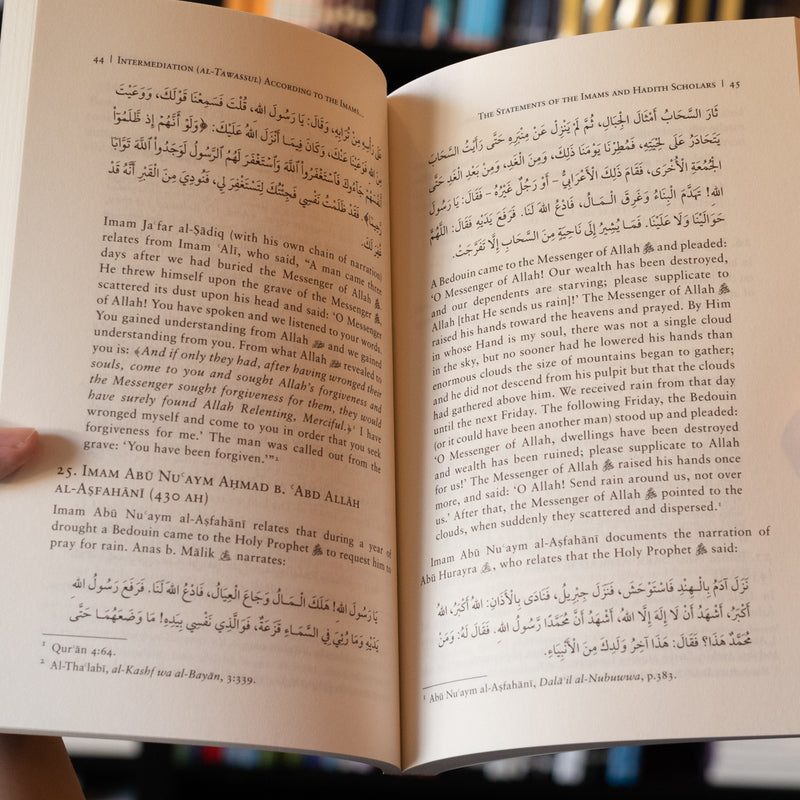 44 | Intermediation (al-Tawassul) According to the Imams...
عَلَى رَأْسِهِ مِنْ تُرَابِهِ، وَقَالَ: يَا رَسُولَ اللهِ، قُلْتَ فَسَمِعْنَا قَوْلَكَ، وَوَعَيْتَ
عَنِ اللهِ فَوَعَيْنَا عَنْكَ، وَكَانَ فِيمَا أَنْزَلَ اللهُ عَلَيْكَ: ﴿وَلَوْ أَنَّهُمْ إِذ ظَّلَمُوٓاْ
أَنفُسَهُمْ جَآءُوكَ فَاسْتَغْفَرُواْ اللَّهَ وَاسْتَغْفَرَ لَهُمُ الرَّسُولُ لَوَجَدُواْ اللَّهَ تَوَّابًا
رَّحِيمًا﴾. فَقَدْ ظَلَمْتُ نَفْسِي فَجِئْتُكَ لِتَسْتَغْفِرَ لِي، فَنُودِيَ مِنَ الْقَبْرِ أَنَّهُ قَدْ
غُفِرَ لَكَ.
Imam Jaʿfar al-Ṣādiq (with his own chain of narration)
relates from Imam ʿAlī, who said, “A man came three
days after we had buried the Messenger of Allah ﷺ.
He threw himself upon the grave of the Messenger ﷺ,
scattered its dust upon his head and said: ‘O Messenger
of Allah! You have spoken and we listened to your words.
You gained understanding from Allah and we gained
understanding from you. From what Allah revealed to
you is: ﴾And if only they had, after having wronged their
souls, come to you and sought Allah’s forgiveness and
the Messenger sought forgiveness for them, they would
have surely found Allah Relenting, Merciful.﴿¹ I have
wronged myself and come to you in order that you seek
forgiveness for me.’ The man was called out from the
grave: ‘You have been forgiven.’”²
25. Imam Abū Nuʿaym Aḥmad b. ʿAbd Allāh
al-Aṣfahānī (430 AH)
Imam Abū Nuʿaym al-Aṣfahānī relates that during a year of
drought a Bedouin came to the Holy Prophet ﷺ to request him to
pray for rain. Anas b. Mālik narrates:
يَا رَسُولَ اللهِ! هَلَكَ الْـمَالُ وَجَاعَ الْعِيَالُ، فَادْعُ اللهَ لَنَا. فَرَفَعَ رَسُولُ اللهِ
يَدَيْهِ وَمَا رُئِيَ فِي السَّمَاءِ قَزَعَةٌ، فَوَالَّذِي نَفْسِي بِيَدِهِ! مَا وَضَعَهُمَا حَتَّى
¹ Qurʾān 4:64.
² Al-Thaʿlabī, al-Kashf wa al-Bayān, 3:339.
The Statements of the Imams and Hadith Scholars | 45
ثَارَ السَّحَابُ أَمْثَالَ الْجِبَالِ، ثُمَّ لَمْ يَنْزِلْ عَنْ مِنْبَرِهِ حَتَّى رَأَيْتُ السَّحَابَ
يَتَحَادَرُ عَلَى لِحْيَتِهِ، فَمُطِرْنَا يَوْمَنَا ذَلِكَ، وَمِنَ الْغَدِ، وَمِنْ بَعْدِ الْغَدِ حَتَّى
الْجُمُعَةِ الْأُخْرَى، فَقَامَ ذَلِكَ الْأَعْرَابِيُّ – أَوْ رَجُلٌ غَيْرُهُ – فَقَالَ: يَا رَسُولَ
اللهِ! تَهَدَّمَ الْبِنَاءُ وَغَرِقَ الْـمَالُ، فَادْعُ اللهَ لَنَا. فَرَفَعَ يَدَيْهِ فَقَالَ: اللَّهُمَّ
حَوَالَيْنَا وَلَا عَلَيْنَا. فَمَا يُشِيرُ إِلَى نَاحِيَةٍ مِنَ السَّحَابِ إِلَّا تَفَرَّجَتْ.
A Bedouin came to the Messenger of Allah ﷺ and pleaded:
‘O Messenger of Allah! Our wealth has been destroyed,
and our dependents are starving; please supplicate to
Allah [that He sends us rain]!’ The Messenger of Allah ﷺ
raised his hands toward the heavens and prayed. By Him
in whose Hand is my soul, there was not a single cloud
in the sky, but no sooner had he lowered his hands than
enormous clouds the size of mountains began to gather;
and he did not descend from his pulpit but that the clouds
had gathered above him. We received rain from that day
until the next Friday. The following Friday, the Bedouin
(or it could have been another man) stood up and pleaded:
‘O Messenger of Allah, dwellings have been destroyed
and wealth has been ruined; please supplicate to Allah
for us!’ The Messenger of Allah ﷺ raised his hands once
more, and said: ‘O Allah! Send rain around us, not over
us.’ After that, the Messenger of Allah ﷺ pointed to the
clouds, when suddenly they scattered and dispersed.¹
Imam Abū Nuʿaym al-Aṣfahānī documents the narration of
Abū Hurayra, who relates that the Holy Prophet ﷺ said:
نَزَلَ آدَمُ بِالْـهِنْدِ فَاسْتَوْحَشَ، فَنَزَلَ جِبْرِيلُ، فَنَادَى بِالْأَذَانِ: اللهُ أَكْبَرُ، اللهُ
أَكْبَرُ، أَشْهَدُ أَنْ لَا إِلَهَ إِلَّا اللهُ، أَشْهَدُ أَنَّ مُحَمَّدًا رَسُولُ اللهِ. فَقَالَ لَهُ: وَمَنْ
مُحَمَّدٌ هَذَا؟ فَقَالَ: هَذَا آخِرُ وَلَدِكَ مِنَ الْأَنْبِيَاءِ.
¹ Abū Nuʿaym al-Aṣfahānī, Dalāʾil al-Nubuwwa, p.383.